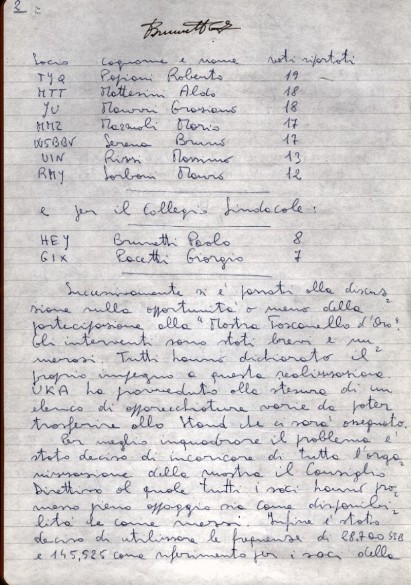 2
Brunetti
Socio cognome e nome voti riportati
TYQ Popioni Roberto 19
MTT Mattesini Aldo 18
YU Graziano 18
MMZ Mazzuoli Mario 17
W5BBV Serena Bruno 17
UIN Rissi Massimo 13
RMY Sorboni Mauro 12
e per il Collegio Sindacale:
HEY Brunetti Paolo 8
GIX Pacetti Giorgio 7
Successivamente si è passati alla discus=
sione sulla opportunità o meno della
partecipazione alla "Mostra Toscanello d'Oro".
Gli interventi sono stati brevi e nu=
merosi. Tutti hanno dichiarato il
proprio impegno a questa realizzazione.
UKA ha provveduto alla stesura di un
elenco di apparecchiature varie da poter
trasferire allo Stand che ci sarà assegnato.
Per meglio inquadrare il problema è
stato deciso di incaricare di tutta l'orga=
nizzazione della mostra il Consiglio
Direttivo al quale tutti i soci hanno pro=
messo pieno appoggio sia come disponibi=
lità che come mezzi. Infine è stato
deciso di utilizzare le frequenze di 28,700 SSB
e 145,525 come riferimento per i soci della